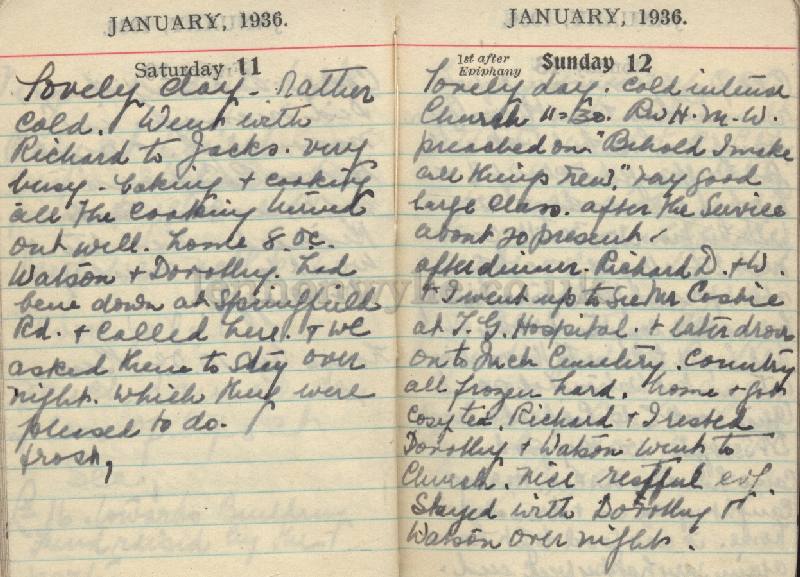 JANUARY, 1936.
Saturday 11
Lovely day - rather
cold. Went with
Richard to Jacks. very
busy - baking + cooking
all the cooking turned
out well. home 8. oc.
Watson + Dorothy. had
bene down at Springfield
Rd. + called here. + we
asked them to stay over
night. which they were
pleased to do.
frost,
JANUARY, 1936.
1st after Epiphany
Sunday 12
Lovely day. cold intense
Church 11-30. Rev H. M. W.
preached on "Behold I make
all things new." very good
large class. after the Service
about 20 present
after dinner. Richard D. + W.
+ I went up to see Mr
at T. G. Hospital. + later drove
on to Cemetery. Country
all frozen hard. home + got
cosy tea. Richard + I rested
Dorothy + Watson went to
Church. nice restful evg
Stayed with Dorothy +
Watson over night.